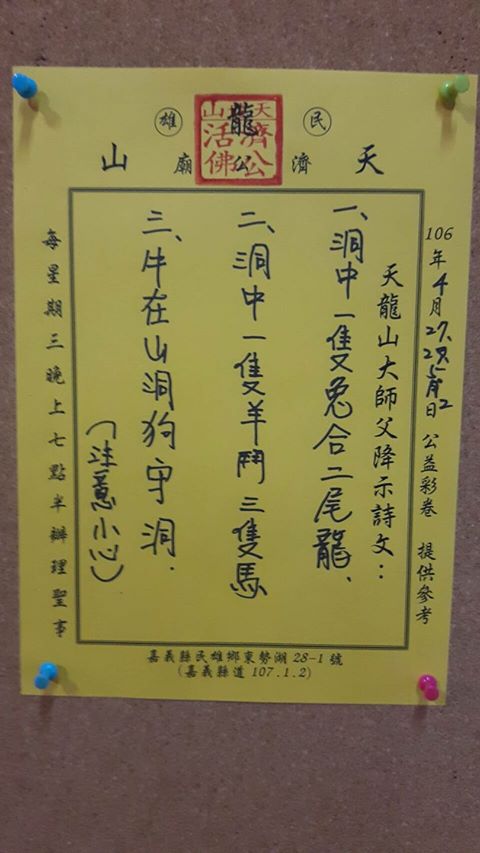 民 龍 雄
天 濟 公 廟 山
天 山
濟公
活佛
106年4月27.28.5月2日 公益彩卷 提供參考
天龍山大師父降示詩文：
一、洞中一隻兔合二尾龍、
二、洞中一隻羊鬥三隻馬
三、牛在山洞狗守洞.
(注意小心)
每星期三晚上七點半辦理聖事
嘉義縣民雄鄉東勢湖28-1號
(嘉義縣道107.1.2)